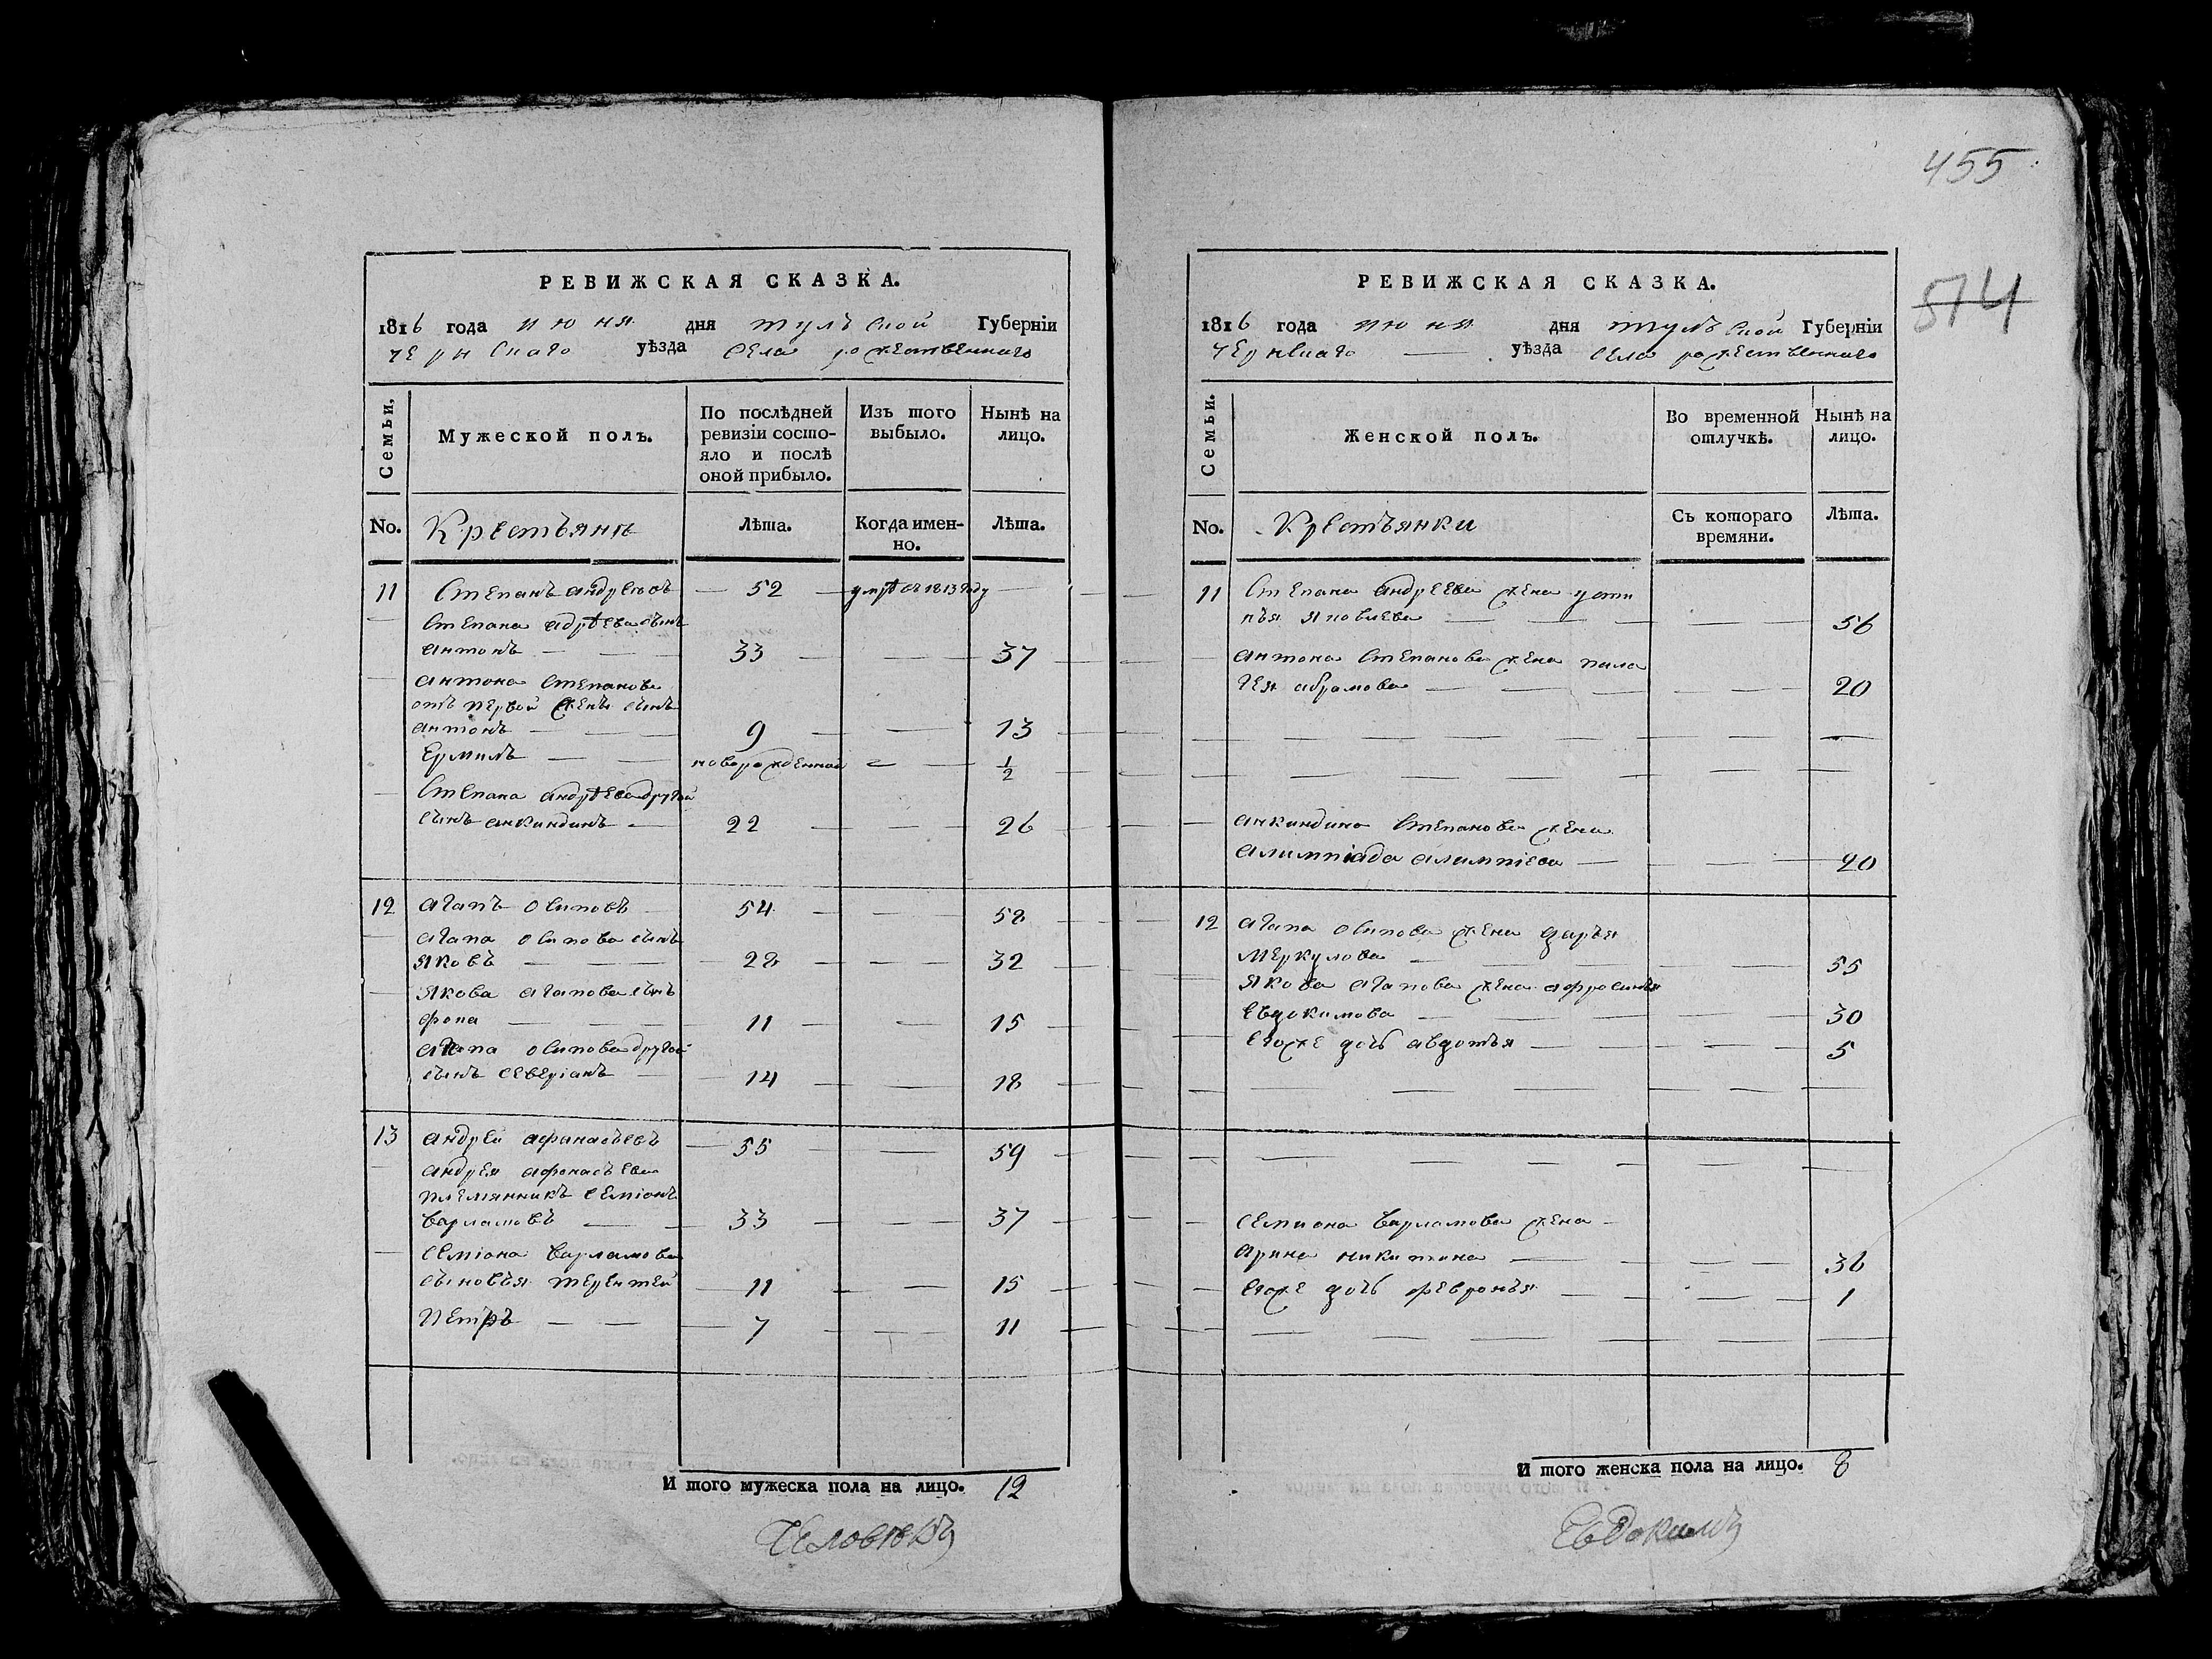 455
514
РЕВИЖСКАЯ СКАЗКА.
1816 года июня дня тульской Губернїи
чернскаго уѣзда села рожественнаго
Семьи,
Мужеской полъ.
По послѣдней ревизїи состо-
яло и послѣ
оной прибыло.
Изъ того выбыло.
Нынѣ на лицо.
No.
Крестьяня
Лѣта.
Когда имен-
но.
Лѣта.
11 Степанъ андреевъ 52 умрѣ въ 1813 году
Степана адрѣева сынъ
антонъ 33 37
антона степанова
отъ первой жены сынъ
антонъ 9 13
Ермилъ новорожденной 1/2
Степана андрѣева другой
сынъ анкиндинъ 22 26
12 агапъ осиповъ 54 58
агапа осипова сынъ
яковъ 28 32
якова агапова сынъ
фопа 11 15
агапа осипова другой
сынъ северїанъ 14 18
13 андрей афанасьевъ 55 59
андрея афонасьева
племянникъ семїонъ
варламовъ 33 37
семїона варламова
сыновья терентей 11 15
петръ 7 11
И того мужеска пола на лицо. 12
Человѣкъ
РЕВИЖСКАЯ СКАЗКА.
1816 года июня дня тульской Губернїи
чернскаго уѣзда села рожественнаго
Семьи.
Женской полъ.
Во временной отлучкѣ.
Нынѣ на лицо.
No.
Крестьянки
Съ котораго времяни.
Лѣта.
11 Степана андреева жена усти
нья яковлева 56
антона степанова жена пела
гея абрамова 20
анкиндина степанова жена
алимпїада алимпїева 20
12 агапа осипова жена дарья
меркулова 55
якова агапова жена афросинья
евдокимова 30
егоже дочь авдотья 5
семиона варламова жена
арина никитина 36
егоже дочь февронья 1
И того женска пола на лицо. 8
Евдокимъ